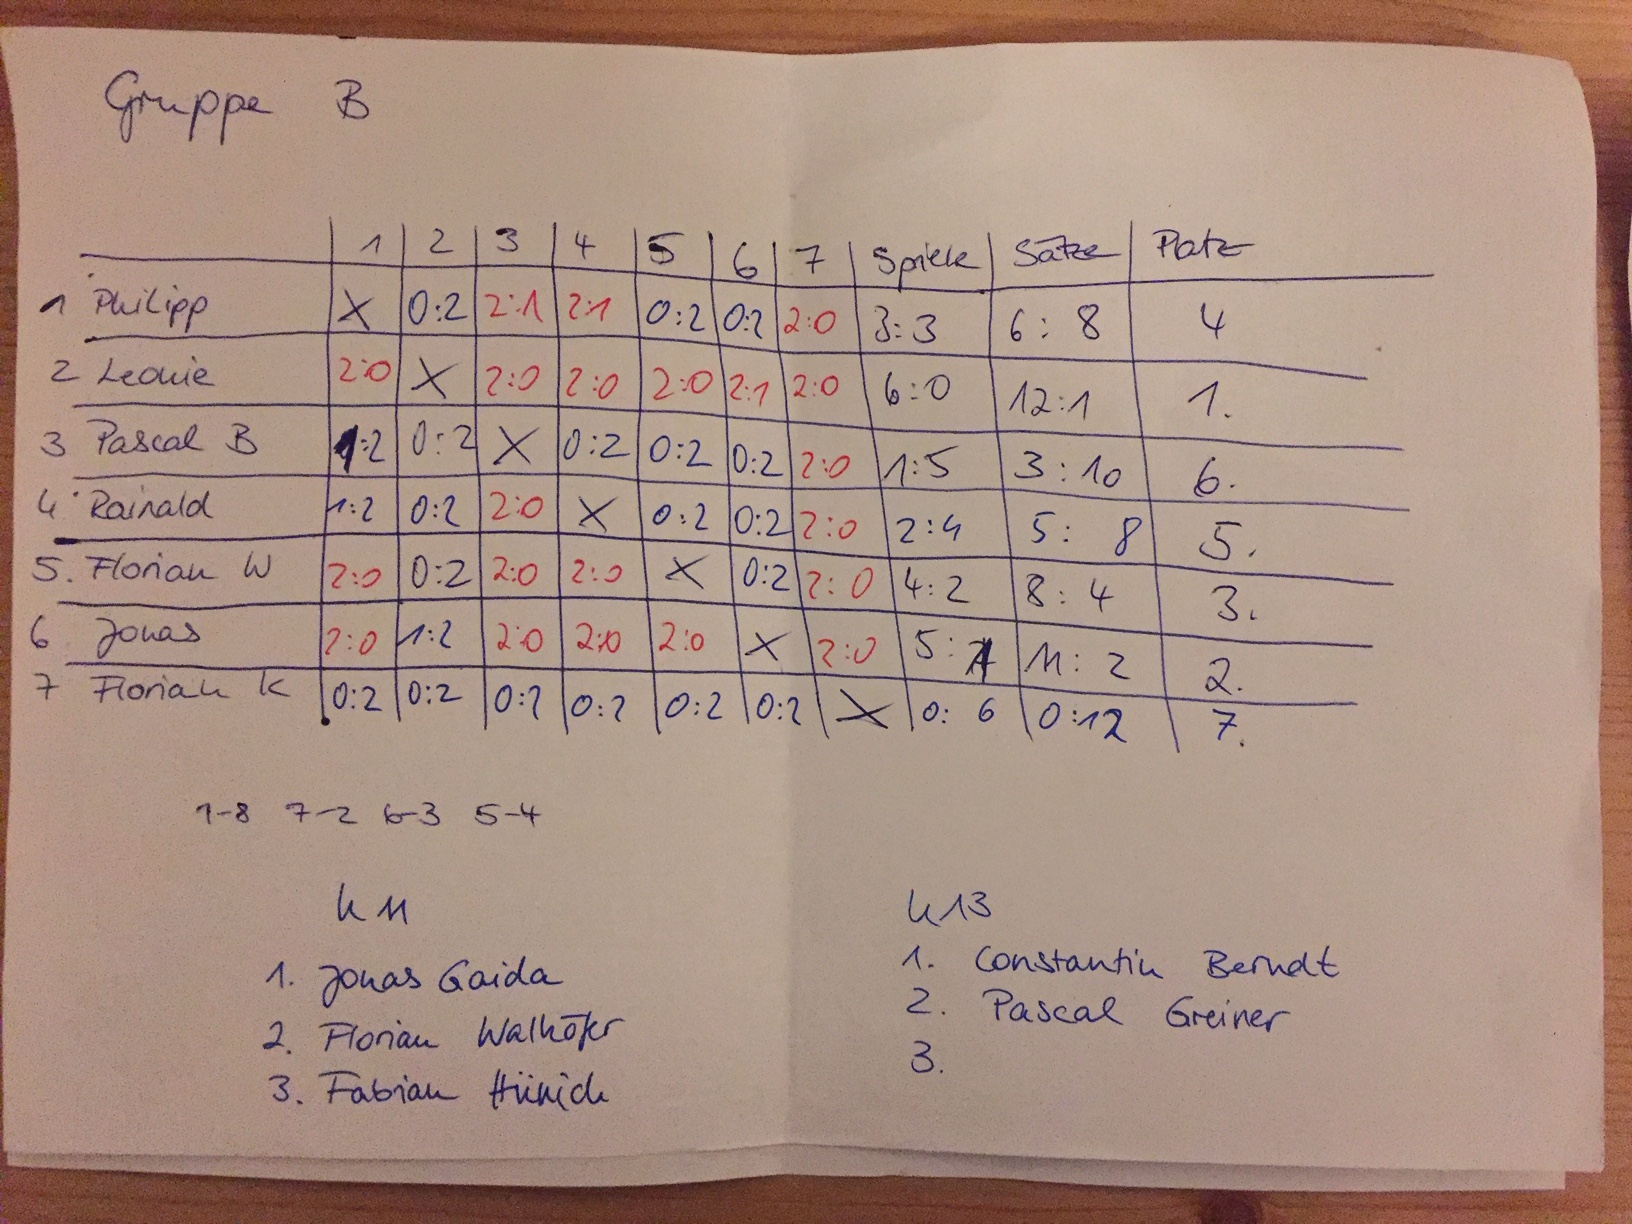 Gruppe B
1 2 3 4 5 6 7 Spiele Sätze Platz
1 Philipp X 0:2 2:1 2:1 0:2 0:2 2:0 3:3 6:8 4
2 Leonie 2:0 X 2:0 2:0 2:0 2:1 2:0 6:0 12:1 1.
3 Pascal B 1:2 0:2 X 0:2 0:2 0:2 2:0 1:5 3:10 6.
4. Rainald 1:2 0:2 2:0 X 0:2 0:2 2:0 2:4 5:8 5.
5. Florian W 2:0 0:2 2:0 2:0 X 0:2 2:0 4:2 8:4 3.
6 Jonas 2:0 1:2 2:0 2:0 2:0 X 2:0 5:1 11:2 2.
7 Florian K 0:2 0:2 0:2 0:2 0:2 0:2 X 0:6 0:12 7.
1-8 7-2 6-3 5-4
U11
1. Jonas Gaida
2. Florian Walhöfer
3. Fabian Hünich
U13
1. Constantin Berndt
2. Pascal Greiner
3.